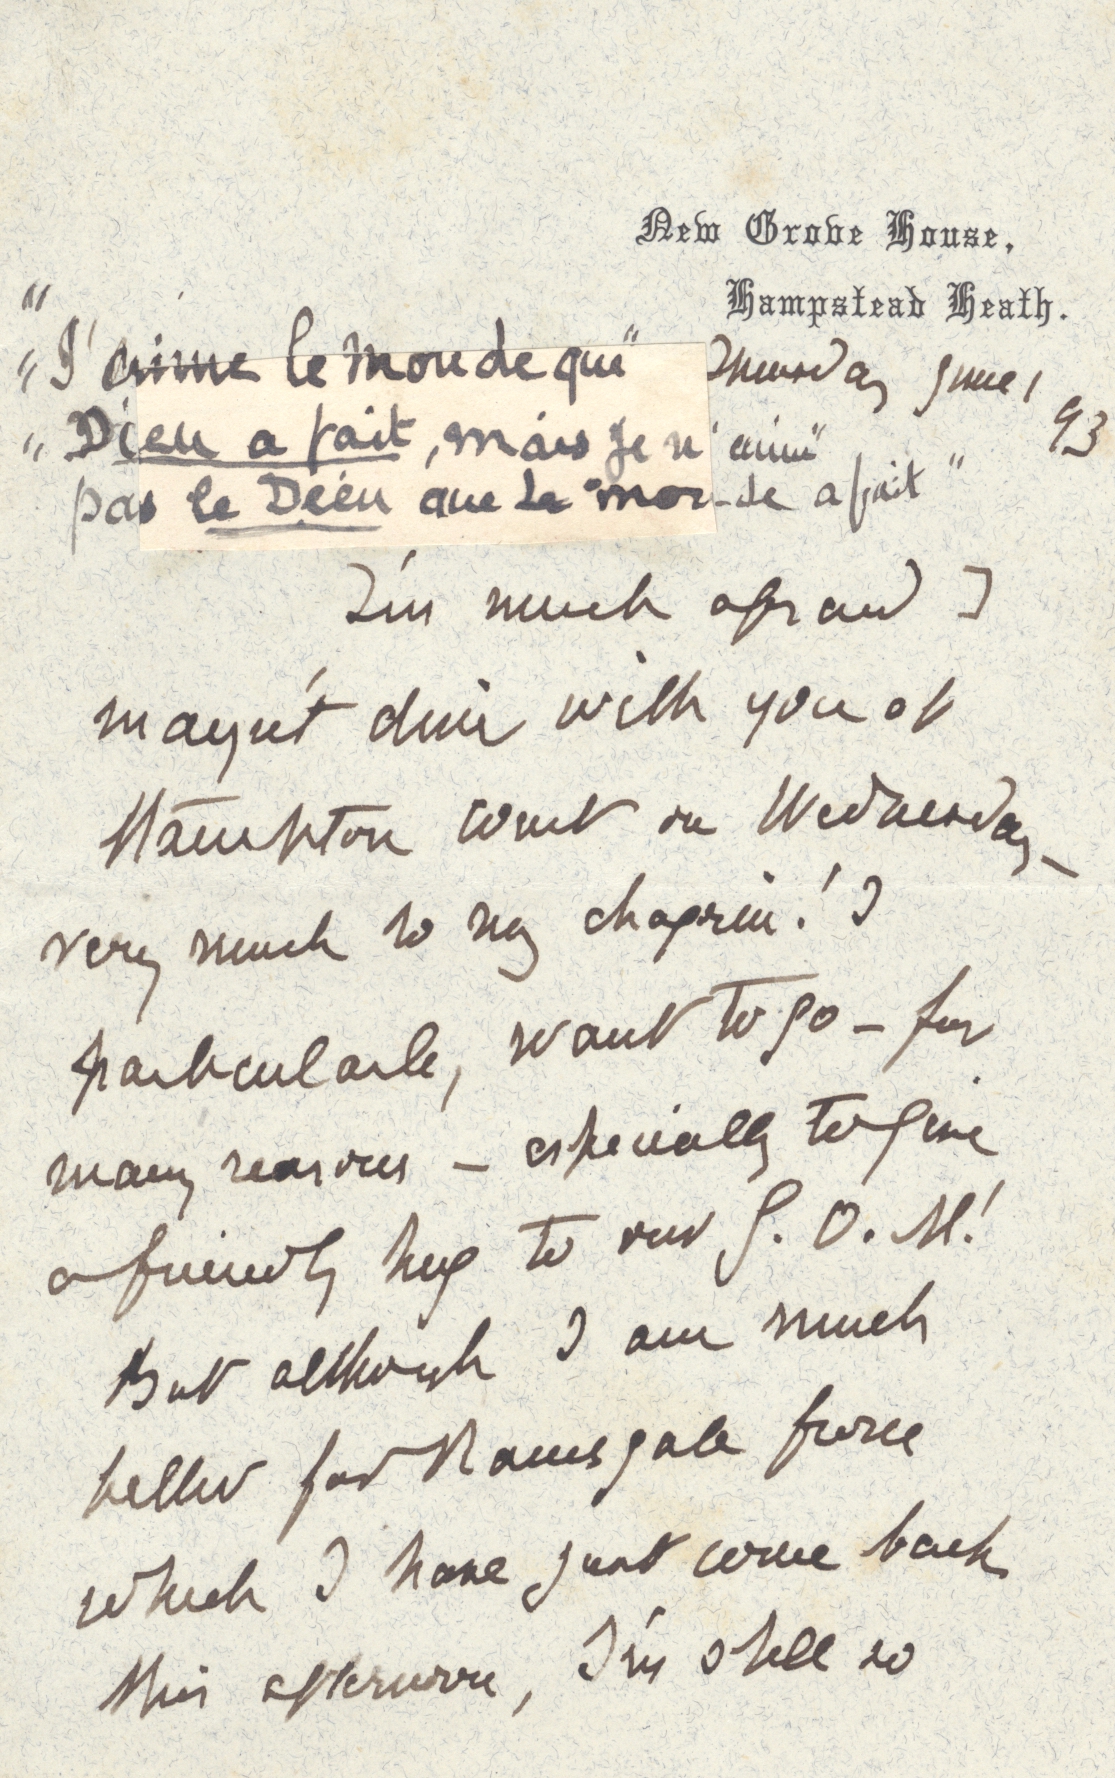 New Grove House,
Hampstead Heath.
Thursday June 1
93
"
"J'aime le monde qui"
"Dieu a fait, mais je n'aime"
pas le Dieu que le monde a fait"
I'm much afraid I
mayn't dine with you at
Hampton Court on Wednesday –
very much to my chagrin! I
particularly want to go – for
many reasons – especially to give
a friendly hug to our G. O. M!
But although I am much
better for Ramsgate from
which I have just come back
this afternoon, I'm still so